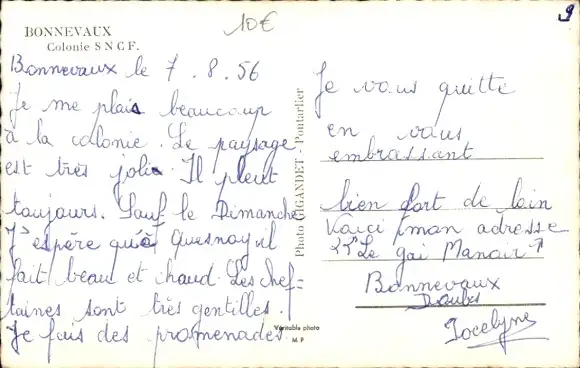 BONNEVAUX
Colonie S N C F.
10€
9
Bonnevaux le 7.8.56
Je me plais beaucoup
à la colonie. Le paysage
est très jolie. Il pleut
toujours. Sauf le Dimanche
J'espère qu'à Quesnoy il
fait beau et chaud. Les chef=
taines sont très gentilles.
Je fais des promenades.
Photo GIGANDET - Pontarlier
Véritable photo
M P
Je vous quitte
en vous
embrassant
bien fort de loin
Voici mon adresse
"Le gai Manoir"
Bonnevaux
Doubs
Jocelyne